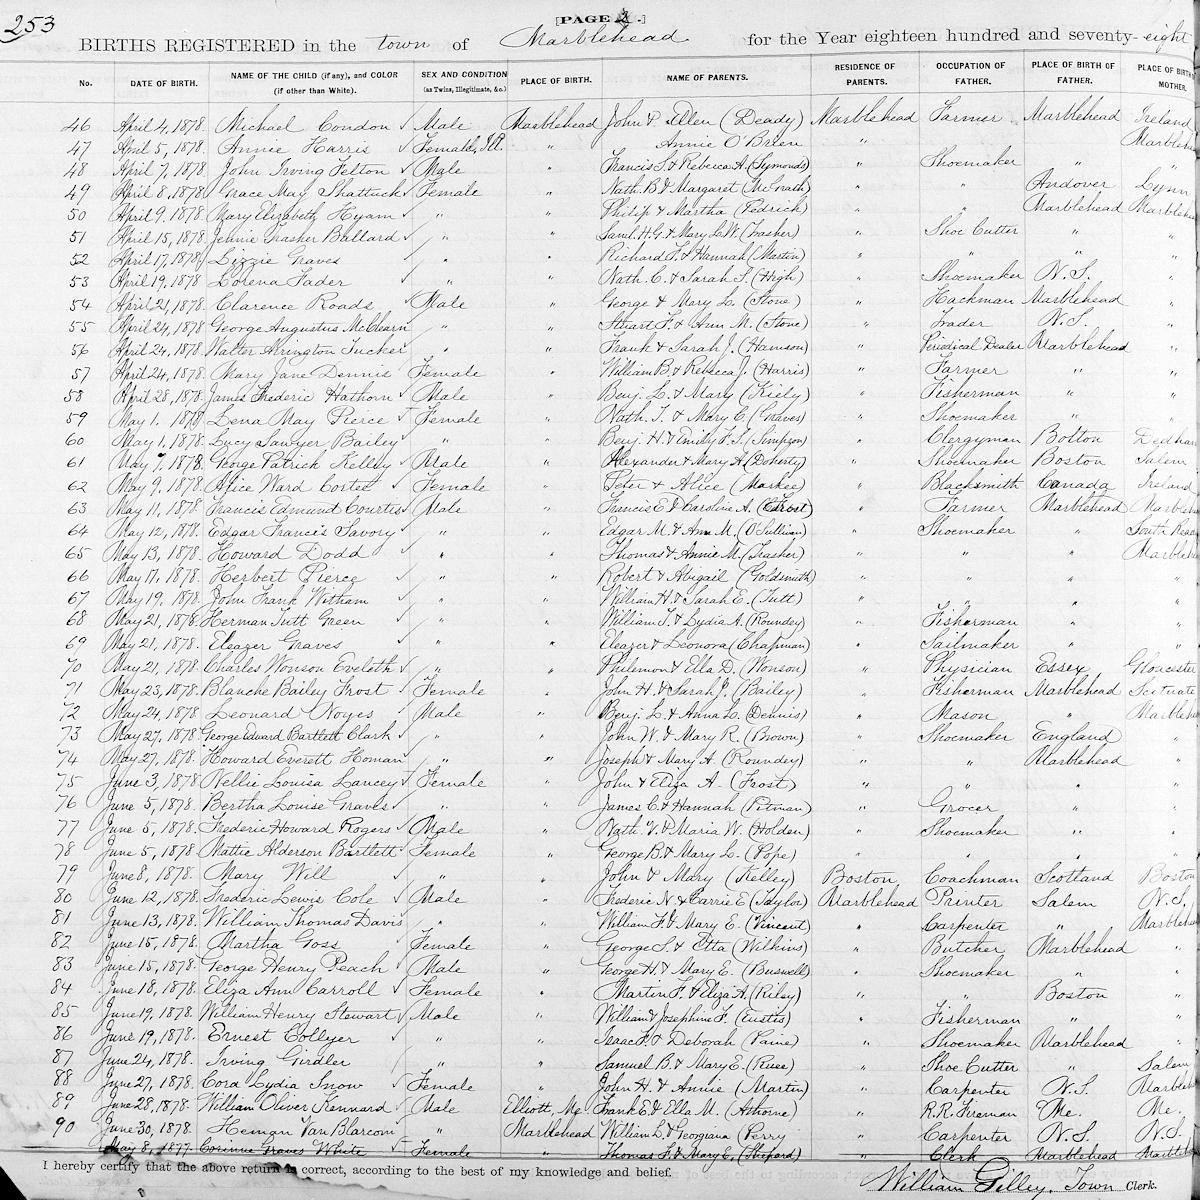 253
[PAGE 2.]
BIRTHS REGISTERED in the town of Marblehead for the Year eighteen hundred and seventy-eight
No. DATE OF BIRTH. NAME OF THE CHILD (if any), and COLOR (if other than White). SEX AND CONDITION (as Twins, Illegitimate, &c.) PLACE OF BIRTH. NAME OF PARENTS. RESIDENCE OF PARENTS. OCCUPATION OF FATHER. PLACE OF BIRTH OF FATHER. PLACE OF BIRTH MOTHER.
46 April 4, 1878. Michael Condon ✓ Male Marblehead John & Ellen (Deady) Marblehead Farmer Marblehead Ireland
47 April 5, 1878. Annie Harris ✓ Female, Ill. " Annie O'Brien " Marble
48 April 7, 1878. John Irving Felton ✓ Male " Francis S. & Rebecca A. (Symonds) " Shoemaker " "
49 April 8, 1878. Grace May Shattuck ✓ Female " Nath. B. & Margaret (McGrath) " " Andover Lynn
50 April 9, 1878. Mary Elizabeth Hyam ✓ " " Philip & Martha (Pedrick) " " Marblehead Marblehea
51 April 15, 1878. Jennie Trasher Ballard ✓ " " Saml. H. G. & Mary L. W. (Trasher) " Shoe Cutter " "
52 April 17, 1878. Lizzie Graves " " Richard F. & Hannah (Martin) " " " "
53 April 19, 1878. Lorena Fader " " Nath. C. & Sarah S. (High) " Shoemaker N. S. "
54 April 21, 1878. Clarence Roads ✓ Male " George & Mary L. (Stone) " Hackman Marblehead "
55 April 24, 1878. George Augustus McClearn " " Stuart F. & Ann M. (Stone) " Trader N. S. "
56 April 24, 1878. Walter Arrington Tucker " " Frank & Sarah J. (Hamson) " Periodical Dealer Marblehead "
57 April 24, 1878. Mary Jane Dennis ✓ Female " William B. & Rebecca J. (Harris) " Farmer " "
58 April 28, 1878. James Frederic Hathorn ✓ Male " Benj. L. & Mary (Kiely) " Fisherman " "
59 May 1. 1878. Lena May Pierce ✓ Female " Nath. T. & Mary C. (Graves) " Shoemaker " "
60 May 1, 1878. Lucy Sawyer Bailey ✓ " " Benj. H. & Emily F. S. (Simpson) " Clergyman Bolton Dedham
61 May 7, 1878. George Patrick Kelley ✓ Male " Alexander & Mary A. (Doherty) " Shoemaker Boston Salem
62 May 9. 1878. Alice Ward Cortie ✓ Female " Peter & Alice (Markee) " Blacksmith Canada Ireland
63 May 11, 1878. Francis Edmund Courtis ✓ Male " Francis E. & Caroline A. (Frost) " Farmer Marblehead Marbleh
64 May 12, 1878. Edgar Francis Savory " " Edgar M. & Ann M. (O'Sullivan) " Shoemaker " South Read
65 May 13, 1878. Howard Dodd " " Thomas & Annie M. (Trasher) " " " Marbleh
66 May 17, 1878. Herbert Pierce ✓ " " Robert & Abigail (Goldsmith) " " " "
67 May 19. 1878. John Frank Witham ✓ " " William H. & Sarah E. (Tutt) " " " "
68 May 21, 1878. Herman Tutt Green ✓ " " William T. & Lydia A. (Roundey) " Fisherman " "
69 May 21, 1878. Eleazer Graves " " Eleazer & Leonora (Chapman) " Sailmaker " "
70 May 21, 1878. Charles Wonson Eveleth ✓ " " Philemon & Ella D. (Wonson) " Physician Essex Gloucester
71 May 23, 1878. Blanche Bailey Frost ✓ Female " John H. & Sarah J. (Bailey) " Fisherman Marblehead Scituate
72 May 24, 1878. Leonard Noyes ✓ Male " Benj. L. & Anna L. (Dennis) " Mason " Marbleh
73 May 27, 1878. George Edward Bartlett Clark ✓ " " John W. & Mary R. (Brown) " Shoemaker England "
74 May 27, 1878. Howard Everett Homan " " Joseph & Mary A. (Roundey) " " Marblehead "
75 June 3, 1878. Nellie Louisa Lancey ✓ Female " John & Eliza A. (Frost) " " " "
76 June 5, 1878. Bertha Louise Graves ✓ " " James C. & Hannah (Pitman) " Grocer " "
77 June 5, 1878. Frederic Howard Rogers ✓ Male " Nath. V. & Maria W. (Holden) " Shoemaker " "
78 June 5, 1878. Mattie Alderson Bartlett ✓ Female " George B. & Mary L. (Pope) " " " "
79 June 8, 1878. Mary Will ✓ " " John & Mary (Kelley) Boston Coachman Scotland Boston
80 June 12, 1878. Frederic Lewis Cole ✓ Male " Frederic N. & Carrie E. (Taylor) Marblehead Printer Salem N. S.
81 June 13, 1878. William Thomas Davis " " William F. & Mary E. (Vincent) " Carpenter " Marbleh
82 June 15, 1878. Martha Goss ✓ Female " George S. & Etta (Wilkins) " Butcher Marblehead "
83 June 15, 1878. George Henry Peach ✓ Male " George H. & Mary E. (Buswell) " Shoemaker " "
84 June 18, 1878. Eliza Ann Carroll ✓ Female " Martin F. & Eliza A. (Riley) " " Boston "
85 June 19, 1878. William Henry Stewart ✓ Male " William & Josephine F. (Eustis) " Fisherman " "
86 June 19, 1878. Ernest Collyer ✓ " " Isaac F. & Deborah (Paine) " Shoemaker Marblehead "
87 June 24, 1878. Irving Girdler " " Samuel B. & Mary E. (Ruee) " Shoe Cutter " Salem
88 June 27, 1878. Cora Lydia Snow ✓ Female " John H. & Annie (Martin) " Carpenter N. S. Marbleh
89 June 28, 1878. William Oliver Kennard ✓ Male Elliott, Me. Frank E. & Ella M. (Athorne) " R. R. Fireman Me. Me.
90 June 30, 1878. Heman Van Blarcom " Marblehead William L. & Georgiana (Perry " Carpenter N. S. N. S.
May 8, 1877. Corinne Graves White ✓ Female " Thomas F. & Mary E. (Shepard) " Clerk Marblehead Marbleh
I hereby certify that the above return is correct, according to the best of my knowledge and belief.
William Gilley, Town Clerk.